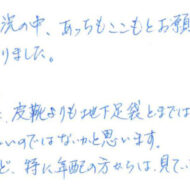 況の中、あっちもこっちもとお願
りました。
、皮靴よりも地下足袋とまでは
いのではないかと思います。
ど、特に年配の方からは、見て